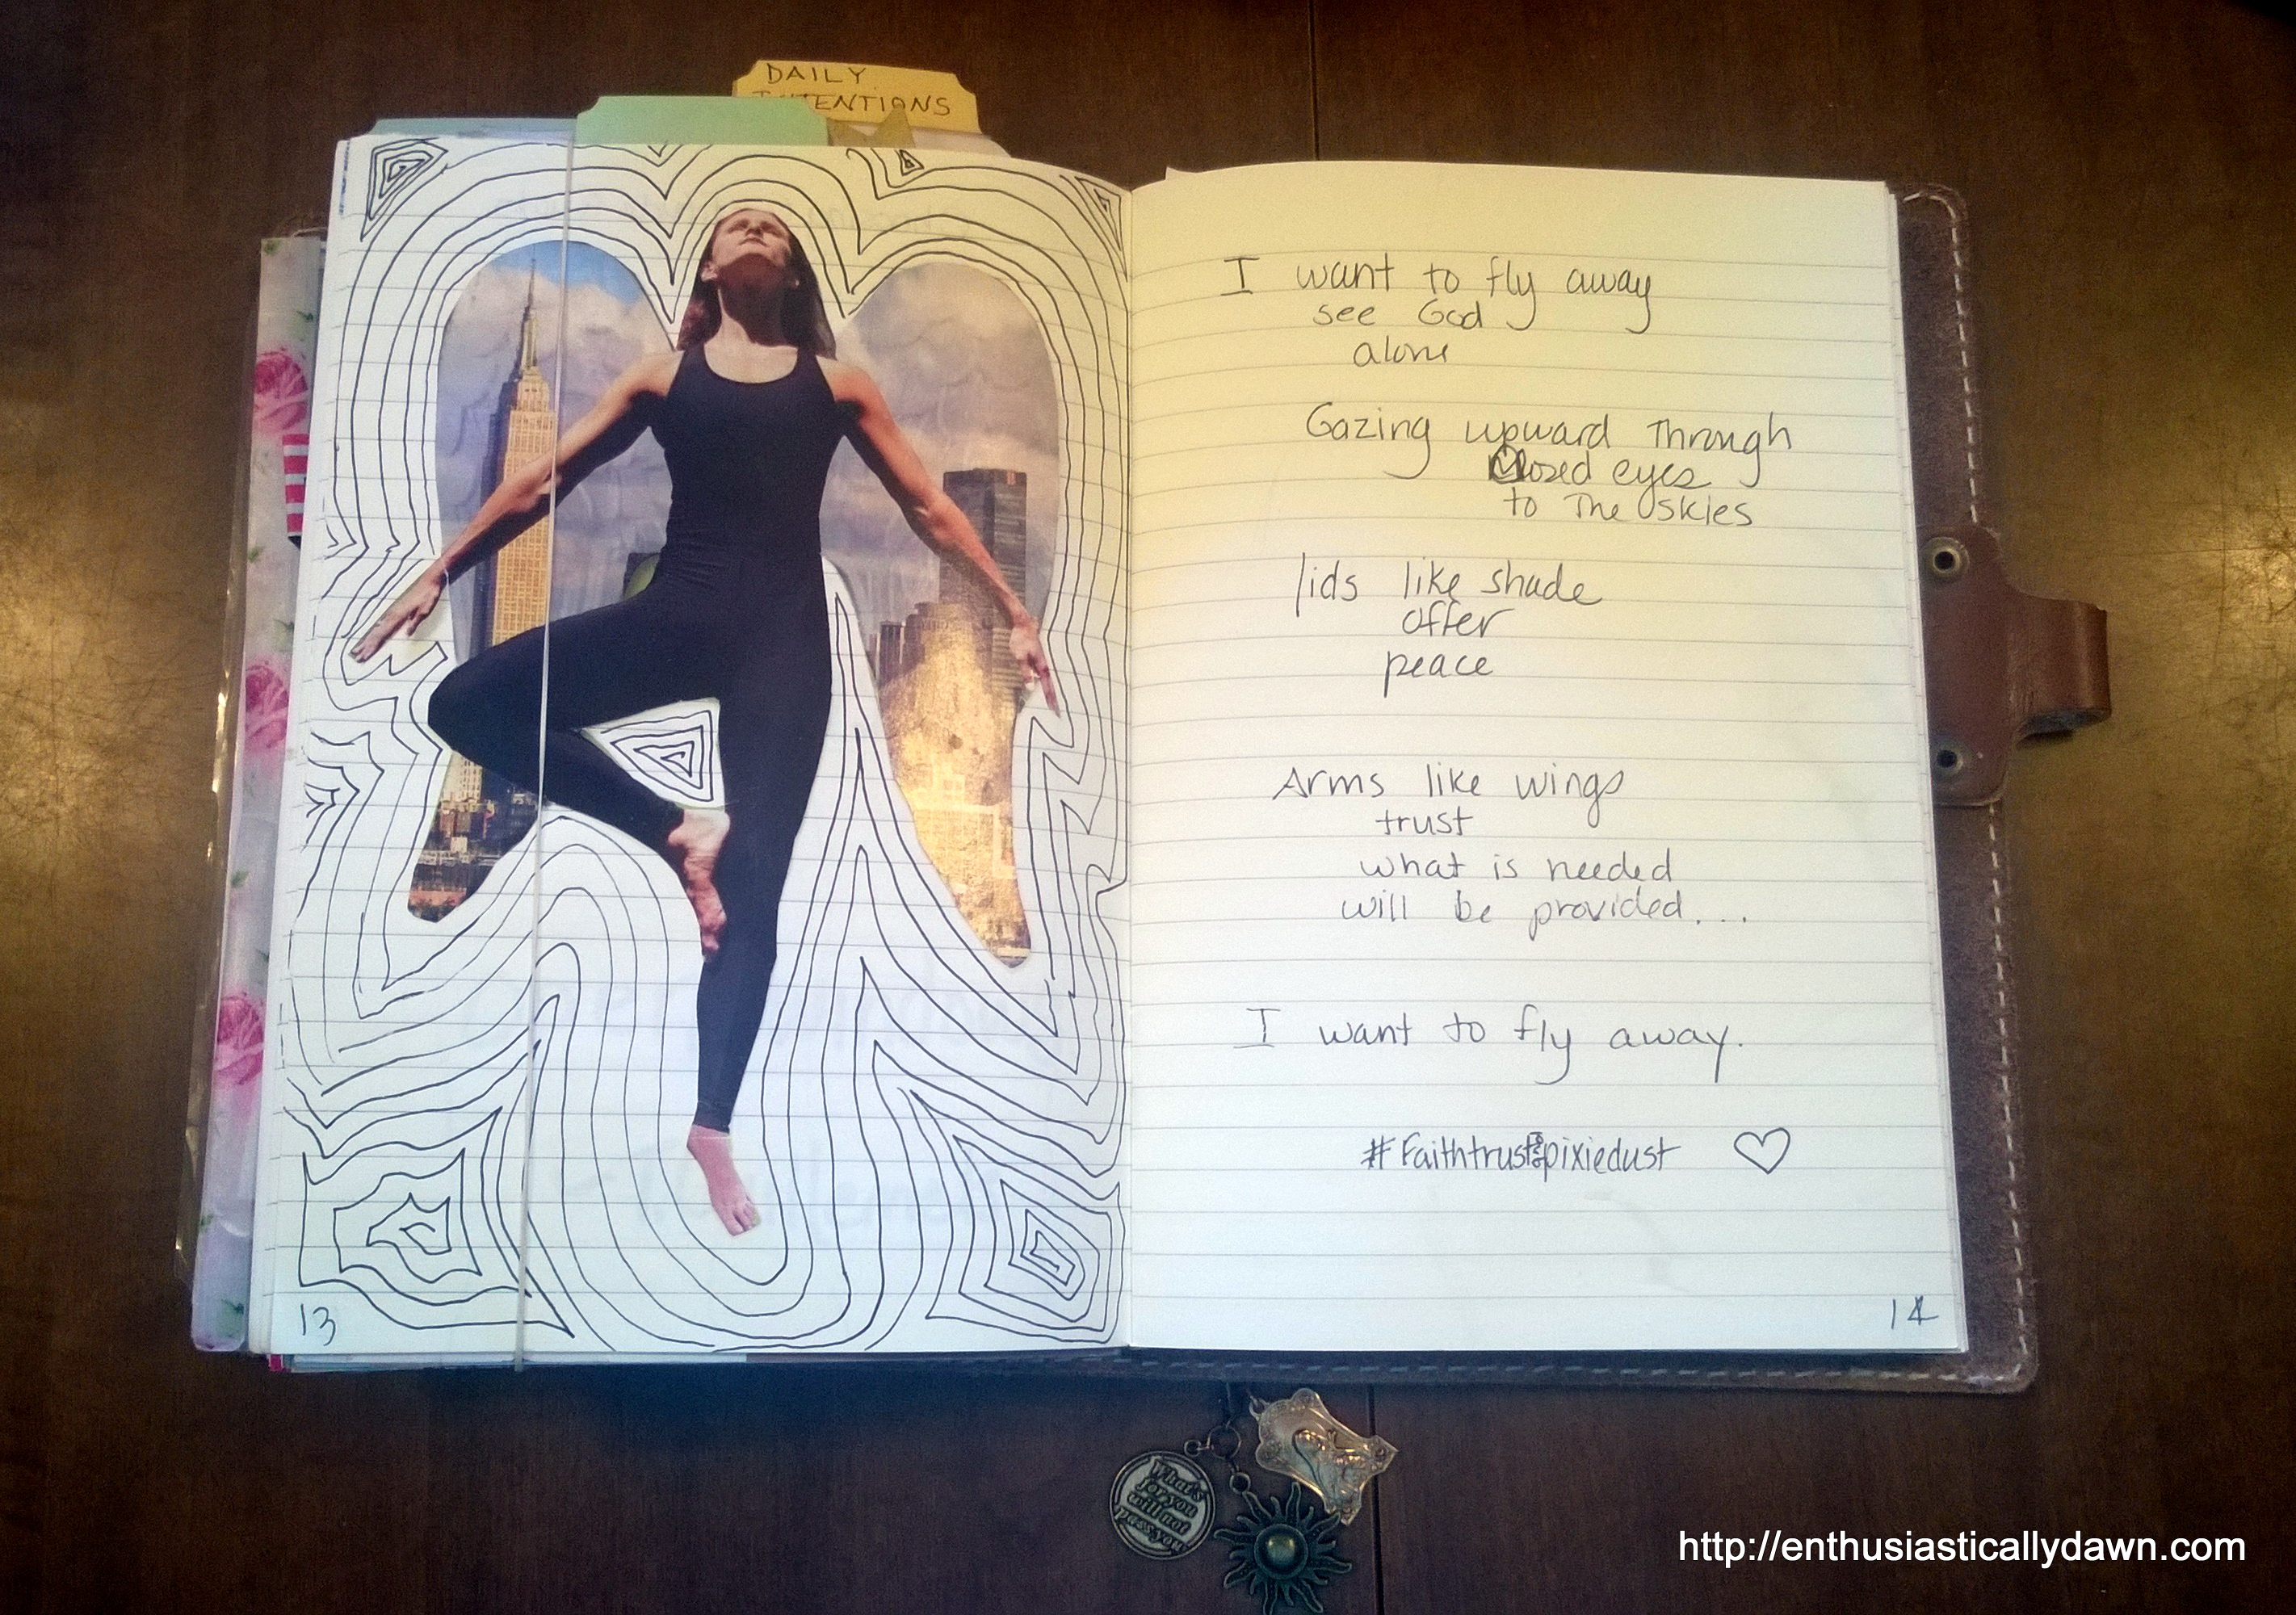 DAILY
INTENTIONS
I want to fly away
see God
alone
Gazing upward Through
Closed eyes
to The skies
lids like shade
offer
peace
Arms like wings
trust
what is needed
will be provided...
I want to fly away.
#Faithtrust&pixiedust
13
14
What's
for you
will not
pass you
http://enthusiasticallydawn.com